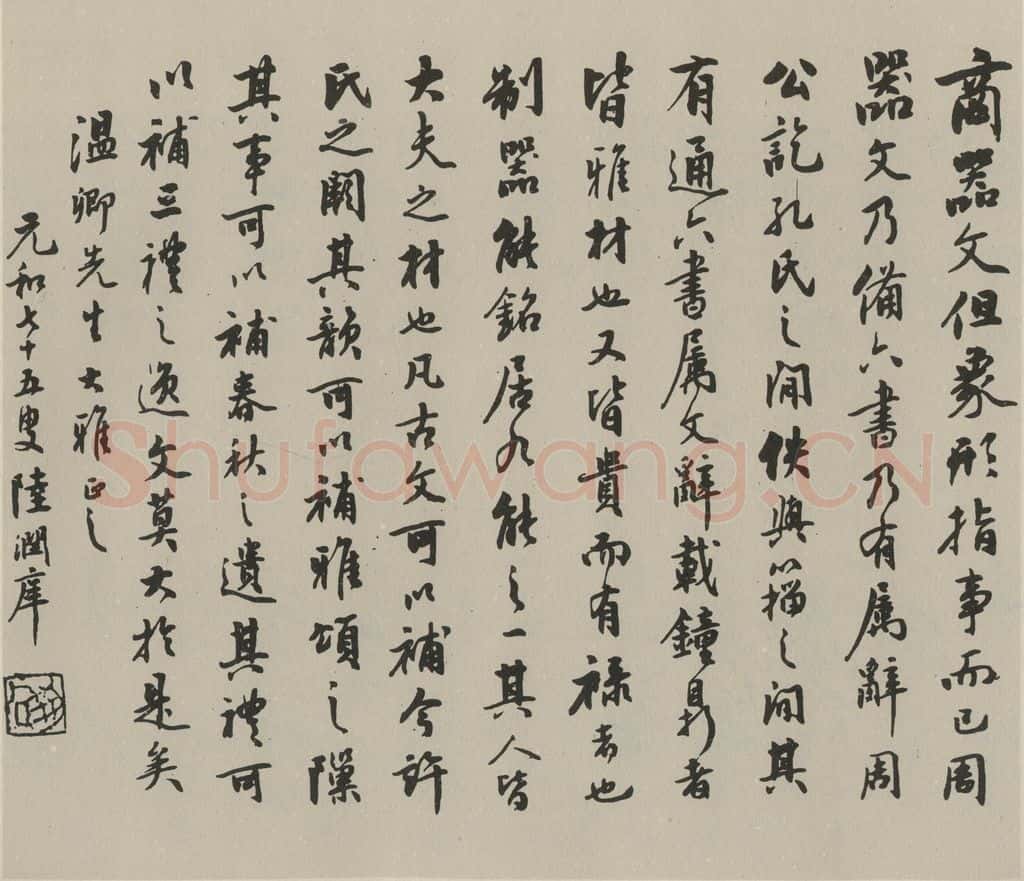 商器文但象形指事而已周
器文乃備六書乃有属辭周
公訖孔氏之間佚與籀之間其
有通六書属文辭載鐘鼎者
皆雅材也又皆貴而有禄者也
制器能銘居九能之一其人皆
大夫之材也凡古文可以補今許
氏之闕其韻可以補雅頌之隟
其事可以補春秋之遺其禮可
以補三禮之逸文莫大於是矣
温卿先生大雅正之
元和七十五叟陸潤庠
Shufawang.CN